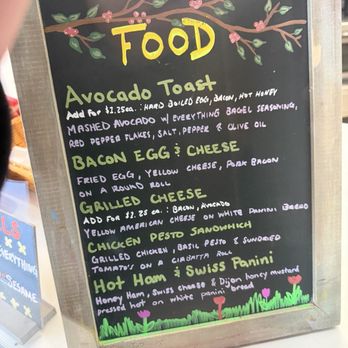 FOOD
Avocado Toast
Add For $2.25ea.: HARD BOILED EGG, BACON, HOT HONEY
MASHED AVOCADO w/ EVERYTHING BAGEL SEASONING,
RED PEPPER FLAKES, SALT, PEPPER & OLIVE OIL
BACON EGG & CHEESE
FRIED EGG, YELLOW CHEESE, PORK BACON
ON A ROUND ROLL
GRILLED CHEESE
ADD FOR $2.25 ea.: BACON, AVOCADO
YELLOW AMERICAN CHEESE ON WHITE PANINI BREAD
CHICKEN PESTO SANDWHICH
GRILLED CHICKEN, BASIL PESTO & SUNDRIED
TOMATO'S ON A CIABATTA ROLL
Hot Ham & Swiss Panini
Honey Ham, Swiss cheese & Dijon honey mustard
pressed hot on white panini bread
LS
EVERYTHING
SESAME